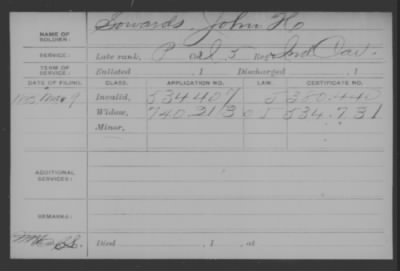 NAME OF SOLDIER: Sowards, John H.
SERVICE: Late rank, P Co. I, 5 Reg't Ind Cav.
TERM OF SERVICE: Enlisted , 1 Discharged , 1
DATE OF FILING. CLASS. APPLICATION NO. LAW. CERTIFICATE NO.
Mar 9 Invalid, 534407 380.440
Widow, 740.313 01 534.731
Minor,
ADDITIONAL SERVICES:
REMARKS:
Died , 1 , at